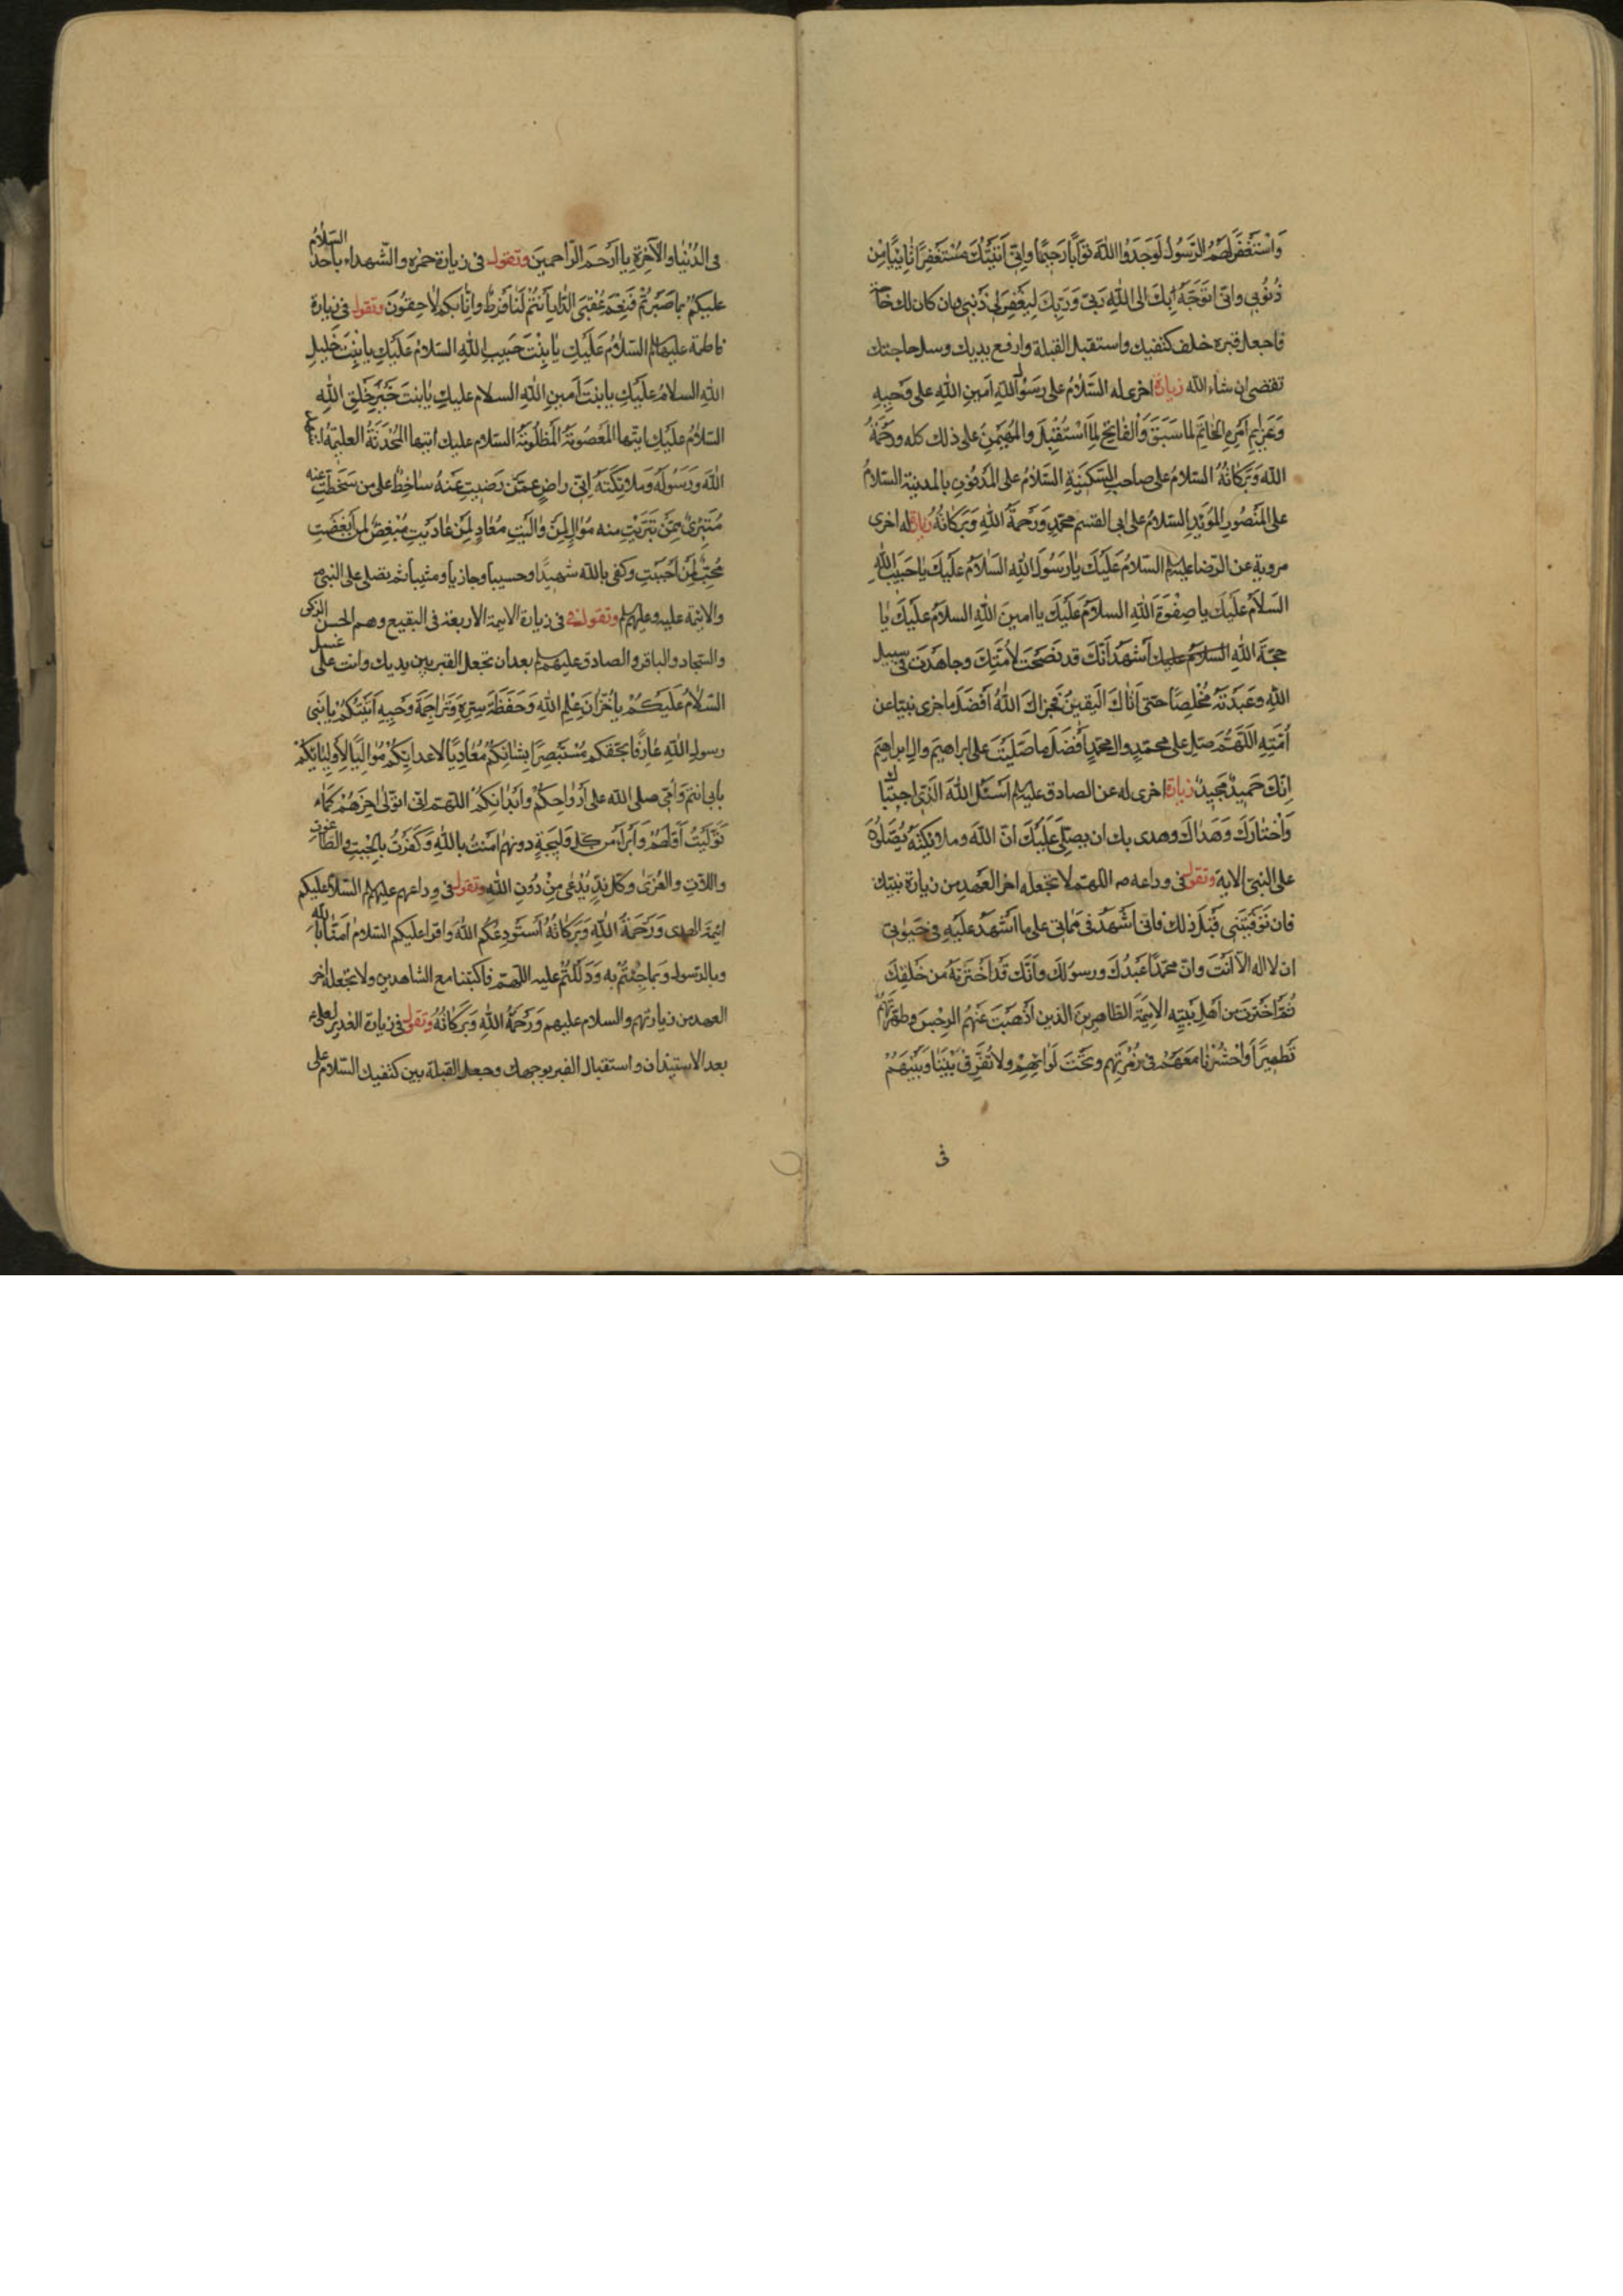 وَاسْتَغْفَرَ لَهُمُ الرَّسُولُ لَوَجَدُوا اللهَ تَوَّابًا رَحِيمًا وانّى اَتَيْتُكَ مُسْتَغْفِرًا تٰائِبًا مِن
ذُنُوبى وانّى اتَوَجَّهُ بِكَ الى اللهِ رَبّى وَرَبِّكَ لِيَغْفِرَ لِى ذُنُوبى وان كان لك حاجة
فاجعل قبره خلف كتفيك واستقبل القبلة وارفع يديك وسل حاجتك
تقضى ان شاء الله زيارة اخرى له السَّلامُ على رَسُولِ اللهِ اَمينِ اللهِ على وَحْيِهِ
وَعَزائِمِ اَمْرِهِ الخاتِمِ لما سَبَقَ وَالفاتِحِ لِمَا اسْتُقْبِلَ والمُهَيْمِنِ على ذلك كله ورحْمَةُ
اللهِ وَبَرَكاتُهُ السلامُ على صاحب السَّكينةِ السَّلامُ على المَدْفُونِ بالمدينة السلامُ
على المَنْصُورِ المُؤَيَّدِ السَلامُ على ابى القسم محمّدٍ وَرَحمَةُ اللهِ وَبَرَكاتُهُ زيارة له اخرى
مروية عن الرّضا عليه السلم السّلامُ عَلَيكَ يا رَسُولَ اللهِ السَّلامُ عَلَيْكَ يا حَبيبَ اللهِ
السَلامُ عَلَيكَ يا صِفْوَةَ اللهِ السلامُ عَلَيْكَ يا امينَ اللهِ السلامُ عَلَيكَ يا
حجّة اللهِ السلامُ عليك أَشْهَدُ اَنَّكَ قد نَصَحْتَ لاُمَّتِكَ وجاهَدْتَ فى سبيل
اللهِ وعَبَدْتَهُ مُخْلِصًا حتى اَتاكَ اليَقينُ فَجَزاكَ اللهُ اَفْضَلَ ما جزى نبيّا عن
اُمَّتِهِ اللّهُمَّ صَلِّ على محمّدٍ وال محمّدٍ اَفْضَلَ ما صَلَّيْتَ على ابراهيمَ وال ابراهيمَ
اِنَّكَ حَميدٌ مَجيدٌ زيارة اخرى له عن الصادق عليه السلم اَسْئَلُ اللهَ الَّذى اجتباك
وَاخْتارَكَ وَهَداكَ وهدى بك ان يصلّى عَلَيْكَ انّ اللهَ وملائِكَتَهُ يُصَلُّونَ
على النبىّ الاية وتقول فى وداعه ص اللهمّ لا تجعله اخر العهد من زيارة نبيّك
فان تَوَفَّيْتَنى قَبْلَ ذلك فانّى اَشْهَدُ فى مَماتى على ما اَشْهَدُ عليه فى حَيٰوتى
ان لا اله الا اَنْتَ وانّ محمّدًا عَبْدُكَ ورسولُكَ وانَّك قَد اخْتَرْتَهُ من خَلقِكَ
ثُمَّ اخْتَرْتَ من اَهْلِ بَيْتِهِ الاَئِمّةَ الطاهِرينَ الذين اَذْهَبْتَ عَنْهُمُ الرِجْسَ وطهّرتَهم
تَطهيرًا وَاحْشُرْنا مَعَهُم فى زُمْرَتِهِم وتَحْتَ لَوائِهِم ولا تُفَرِّق بَيْنَنا وَبَيْنَهُمْ
فى
فى الدُنْيا والآخِرَةِ يا اَرْحَمَ الرّاحِمينَ وتقول فى زيارة حمزه والشّهداء باُحُد السّلامُ
عليكمُ بما صَبَرْتُمْ فَنِعْمَ عُقْبَى الدّارِ اَنْتُمْ لَنا فَرَطٌ وانّا بكم لاحِقُونَ وتقول فى زيارة
فاطمة عليها السلم السّلامُ عَلَيْكِ يا بِنْتَ حَبيبِ اللهِ السّلامُ عَلَيْكِ يا بِنْتَ خَليلِ
اللهِ السلامُ عليكِ يا بنتَ اَمينِ اللهِ السلام عليكِ يا بِنتَ خَيْرِ خَلقِ اللهِ
السّلامُ عَلَيكِ ايّتها المَعْصُومَةُ المَظلُومَةُ السلام عليك ايتها المُحْدَثَةُ العليمَةُ
اللهَ وَرَسُولَهُ وَملائِكَتَهُ اِنّى راضٍ عمّن رَضيتِ عَنْهُ ساخِطٌ على من سَخَطْتِ عنه
مُتَبَرِّئٌ مِمَّنْ تَبَرَّيْتِ منه مُوالٍ لِمَنْ والَيْتِ مُعادٍ لِمَنْ عادَيْتِ مُبْغِضٌ لمن اَبْغَضتِ
مُحِبٌّ لِمَنْ اَحْبَبْتِ وكفى بالله شهيدًا وحسيباً وجازياً ومثيباً ثم تصلى على النبى ص
والائمة عليه وعليهم السلم وتقول فى فى زيارة الائمة الاربعة فى البقيع وهم الحسن الزكى
والسّجاد والباقر والصادق عليهم السلم بعد ان تجعل القبر بين يديك وانت على غسل
السّلامُ عَلَيْكُمْ يا خُزّانَ عِلْمِ اللهِ وَحَفَظَةَ سِرّهِ وَتَراجِمَةَ وَحْيِهِ اَتَيْتُكُمْ يا بَنى
رسولِ اللهِ عارِفًا بحقكم مُسْتَبْصِرًا بِشَانِكُمْ مُعادِيًا لاعدائِكُمْ مُوالِيًا لاَوْلِيائِكُمْ
بابى انتم وَاُمّى صلى الله على اَرْواحِكُمْ واَبْدانِكُمْ اللهمّ انّى اتولّى اخِرَهُمْ كما
تَوَلَّيْتُ اَوَّلَهُمْ وَاَبْرَأُ من كل وَليجَةٍ دونهم امنتُ باللهِ وَكَفَرْتُ بالجِبْتِ والطاغوت
واللاتِ والعُزّى وكل نِدٍّ يُدْعى مِنْ دُونِ اللهِ وتقول فى وداعهم عليهم السلم السّلام عليكم
ائِمةَ الهدى وَرَحمَةُ اللهِ وَبَرَكاتُهُ اَسْتَودِعُكُم اللهَ وَاقرأ عليكم السّلام امَنّا بالله
وبالرّسول وَبما جِئْتُمْ به وَدَلَلْتُمْ عليه اللّهمّ فاكتبنا مع الشاهدين ولا تجعله اخر
العهد من زيارتهم والسلام عليهم وَرَحمَةُ اللهِ وَبَرَكاتُهُ وتقول فى زيارة الغدير لعلى ع
بعد الاستيذان واستقبال القبر بوجهك وجعل القبلة بين كتفيك السّلام على